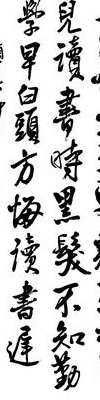 兒讀書時黑髮不知勤
學早白頭方悔讀書遲